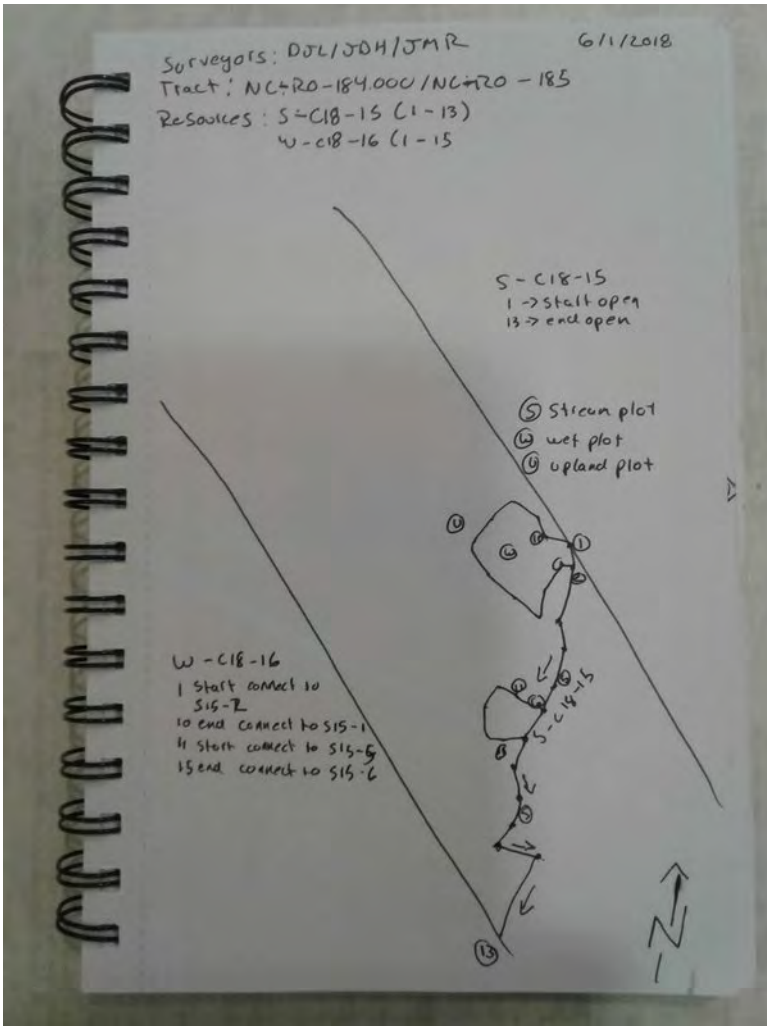 Surveyors: DJL/JDH/JMR 6/1/2018
Tract: NC-RO-184.000/NC-RO-185
Resources: S-C18-15 (1-13)
W-C18-16 (1-15
S-C18-15
1 -> start open
13 -> end open
S Stream plot
W wet plot
U upland plot
U
W
1
S-C18-15
W-C18-16
1 start connect to
S15-2
10 end connect to S15-1
11 start connect to S15-5
15 end connect to S15-6
S
13
N